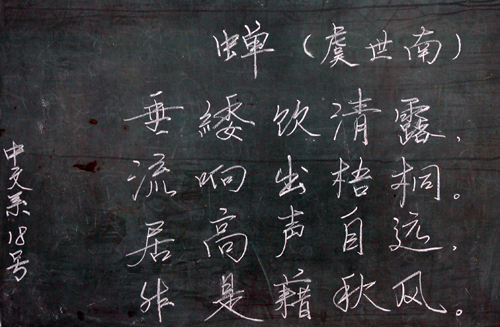 蝉（虞世南）
垂緌饮清露，
流响出梧桐。
居高声自远，
非是藉秋风。
中文系18号